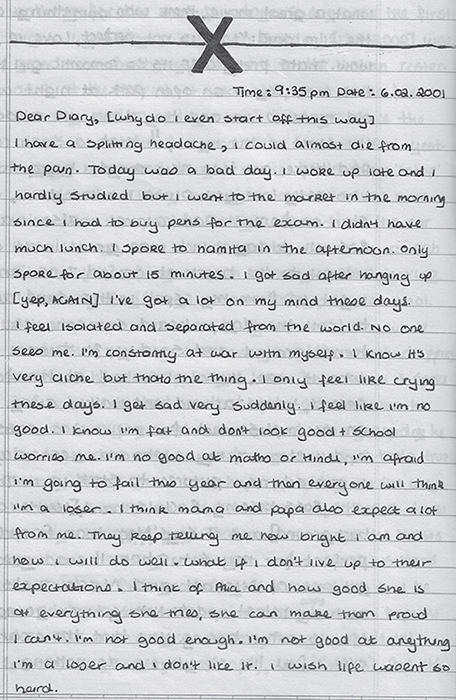 X
Time: 9:35 pm Date: 6.02.2001
Dear Diary, [why do i even start off this way]
I have a splitting headache, I could almost die from
the pain. Today was a bad day. I woke up late and I
hardly studied but I went to the market in the morning
since I had to buy pens for the exam. I didn't have
much lunch. I spoke to namita in the afternoon. Only
spoke for about 15 minutes. I got sad after hanging up
[yep, AGAIN] I've got a lot on my mind these days.
I feel isolated and separated from the world. No one
sees me. I'm constantly at war with myself. I know it's
very cliche but thats the thing. I only feel like crying
these days. I get sad very suddenly. I feel like I'm no
good. I know I'm fat and don't look good + School
worries me. I'm no good at maths or Hindi, I'm afraid
I'm going to fail this year and then everyone will think
I'm a loser. I think mama and papa also expect a lot
from me. They keep telling me how bright I am and
how I will do well. What if I don't live up to their
expectations. I think of Alia and how good she is
at everything she tries, she can make them proud
I can't. I'm not good enough. I'm not good at anything
I'm a loser and I don't like it. I wish life wasent so
hard.